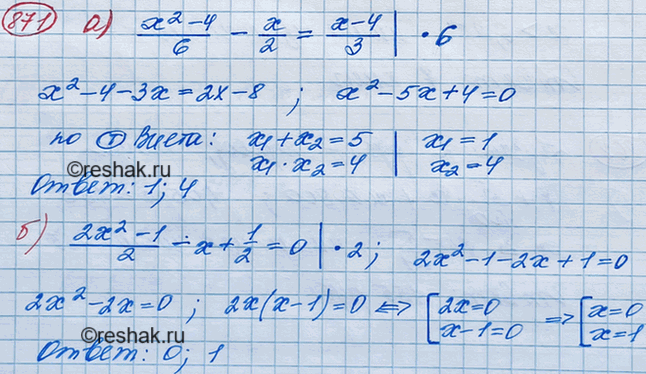 871 а) (x² - 4)/6 - x/2 = (x-4)/3 | · 6
x² - 4 - 3x = 2x - 8 ; x² - 5x + 4 = 0
по Ⓣ Виета: x₁ + x₂ = 5 | x₁ = 1
x₁ · x₂ = 4 | x₂ = 4
©reshak.ru
Ответ: 1; 4
б) (2x² - 1)/2 - x + 1/2 = 0 | · 2 ; 2x² - 1 - 2x + 1 = 0
2x² - 2x = 0 ; 2x(x - 1) = 0 ⇔ [2x = 0 ⇒ [x = 0
x - 1 = 0 x = 1
©reshak.ru
Ответ: 0; 1